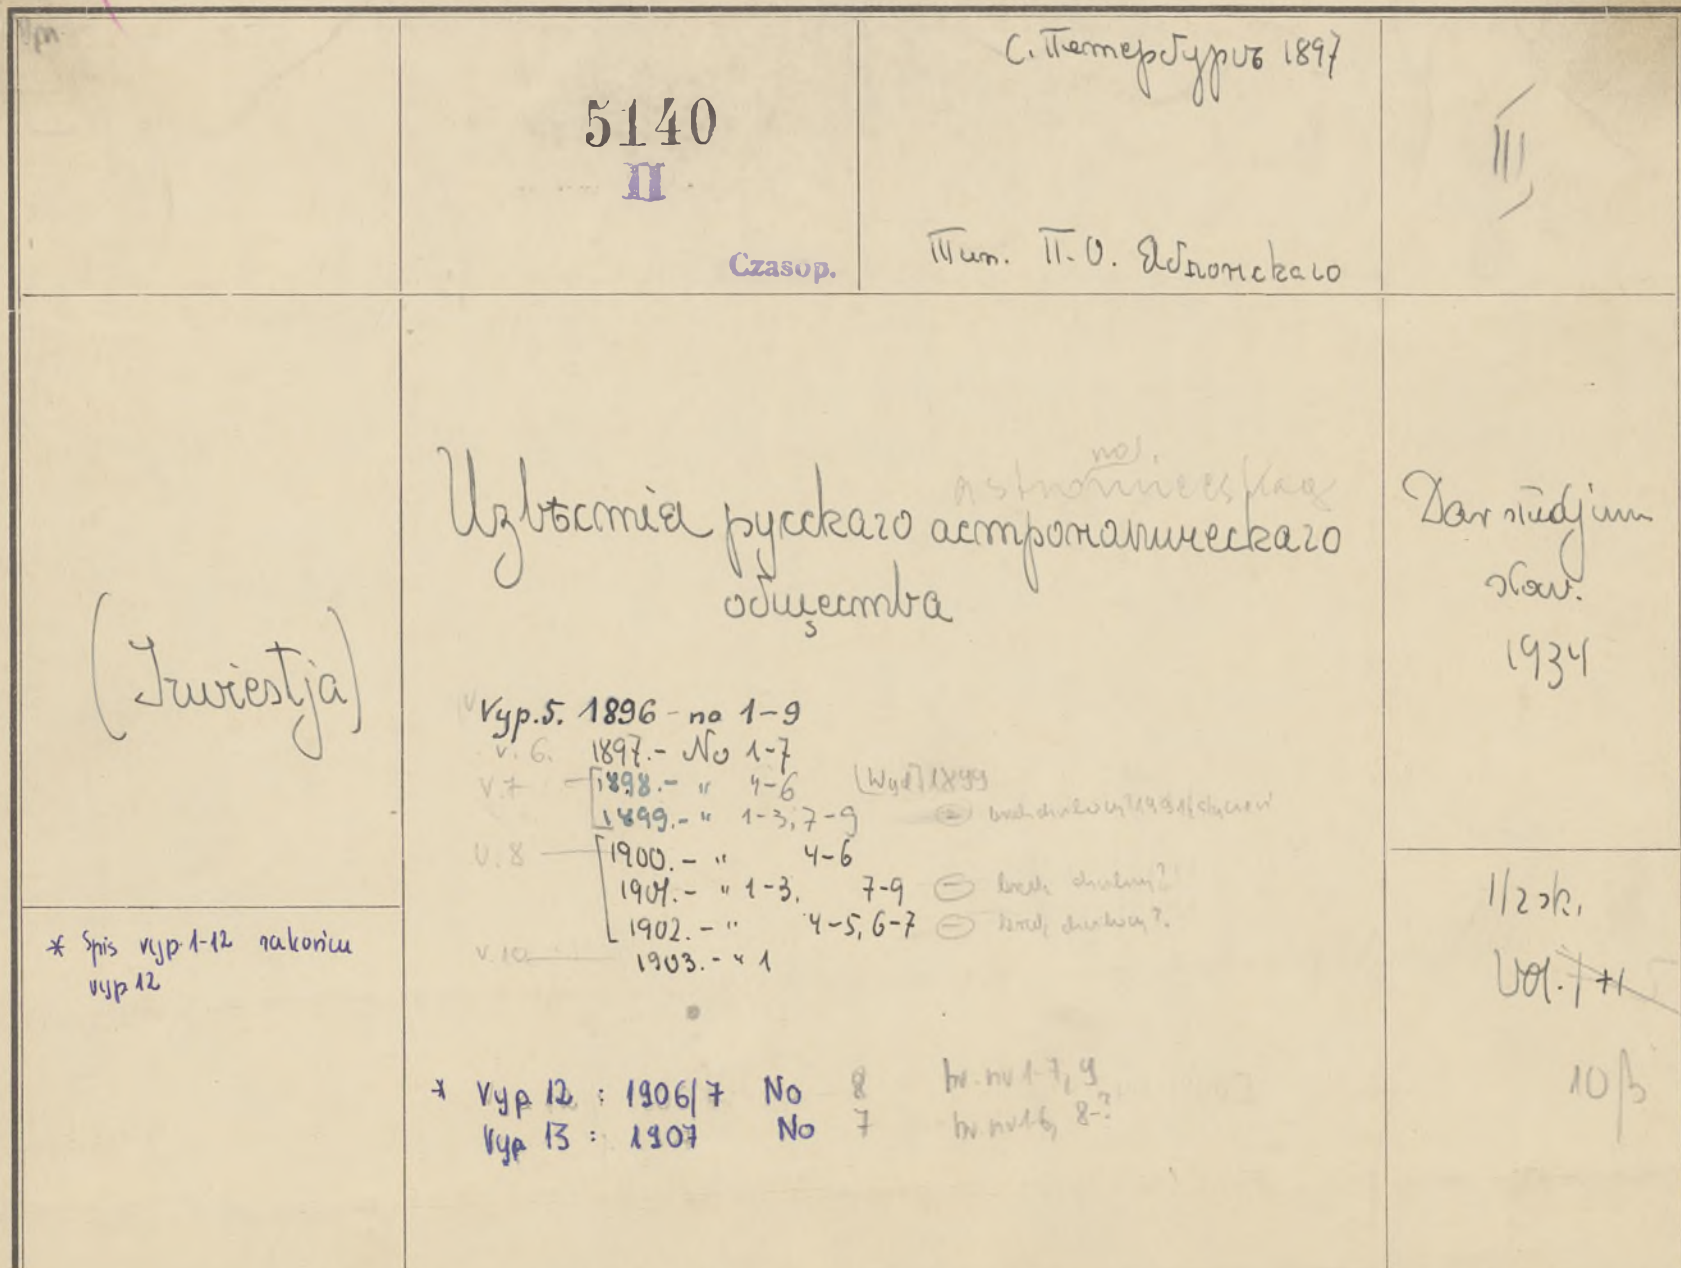 5140
II
Czasop.
С. Петербургъ 1897
Тип. П. О. Яблонскаго
III
Извѣстія русскаго астрономическаго
общества
(Izwiestja)
Dar studjum
słow.
1934
Vyp. 5. 1896 - no 1-9
v. 6. 1897.- No 1-7
v. 7 1898.- " 4-6 [Wyd] 1899
1899.- " 1-3, 7-9
v. 8 1900.- " 4-6
1901.- " 1-3. 7-9
1902.- " 4-5, 6-7
v. 10 1903.- " 1
* Spis vyp. 1-12 na końcu
vyp 12
* Vyp 12 : 1906/7 No 8 br. nr 1-7, 9
Vyp 13 : 1907 No 7 br nr 1-6, 8-?